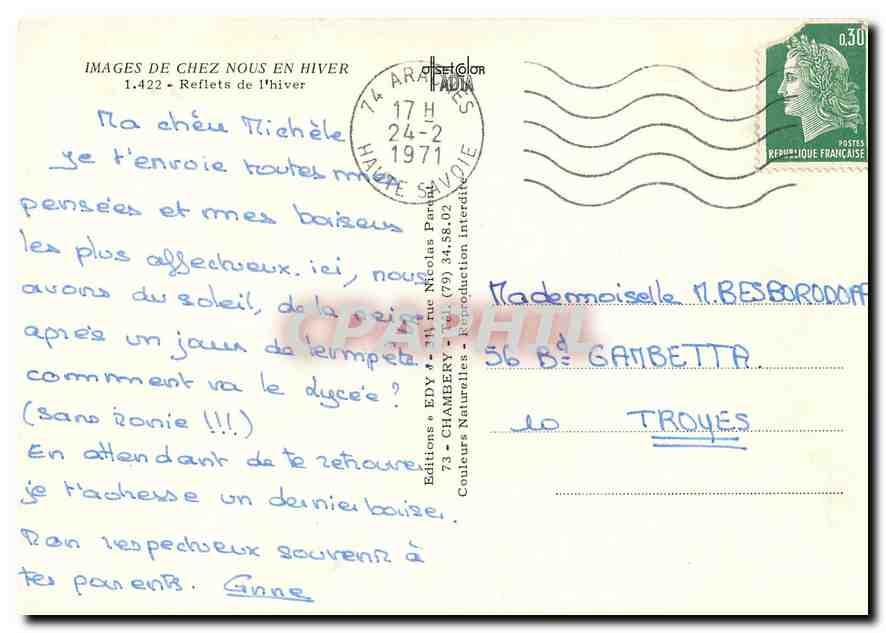 IMAGES DE CHEZ NOUS EN HIVER
1.422 - Reflets de l'hiver
Ma chéu Michèle
je t'envoie toutes mes
pensées et mes baisers
les plus affectueux. ici, nous
avons du soleil, de la neige
après un jour de tempête
comment va le lycée ?
(sans ironie !!!)
En attendant de te retrouver
je t'adresse un dernier baiser.
Mon respectueux souvenir à
tes parents. Anne
OFSETCOLOR
IADIA
74 ARACHES
17 H
24-2
1971
HAUTE SAVOIE
0,30
POSTES
REPUBLIQUE FRANÇAISE
Editions « EDY » - 311, rue Nicolas Parent
73 - CHAMBERY - Tél. (79) 34.58.02
Couleurs Naturelles - Reproduction interdite
Mademoiselle M. BESBORODOFF
56 Bd GAMBETTA.
10 TROYES
CPAPHIL